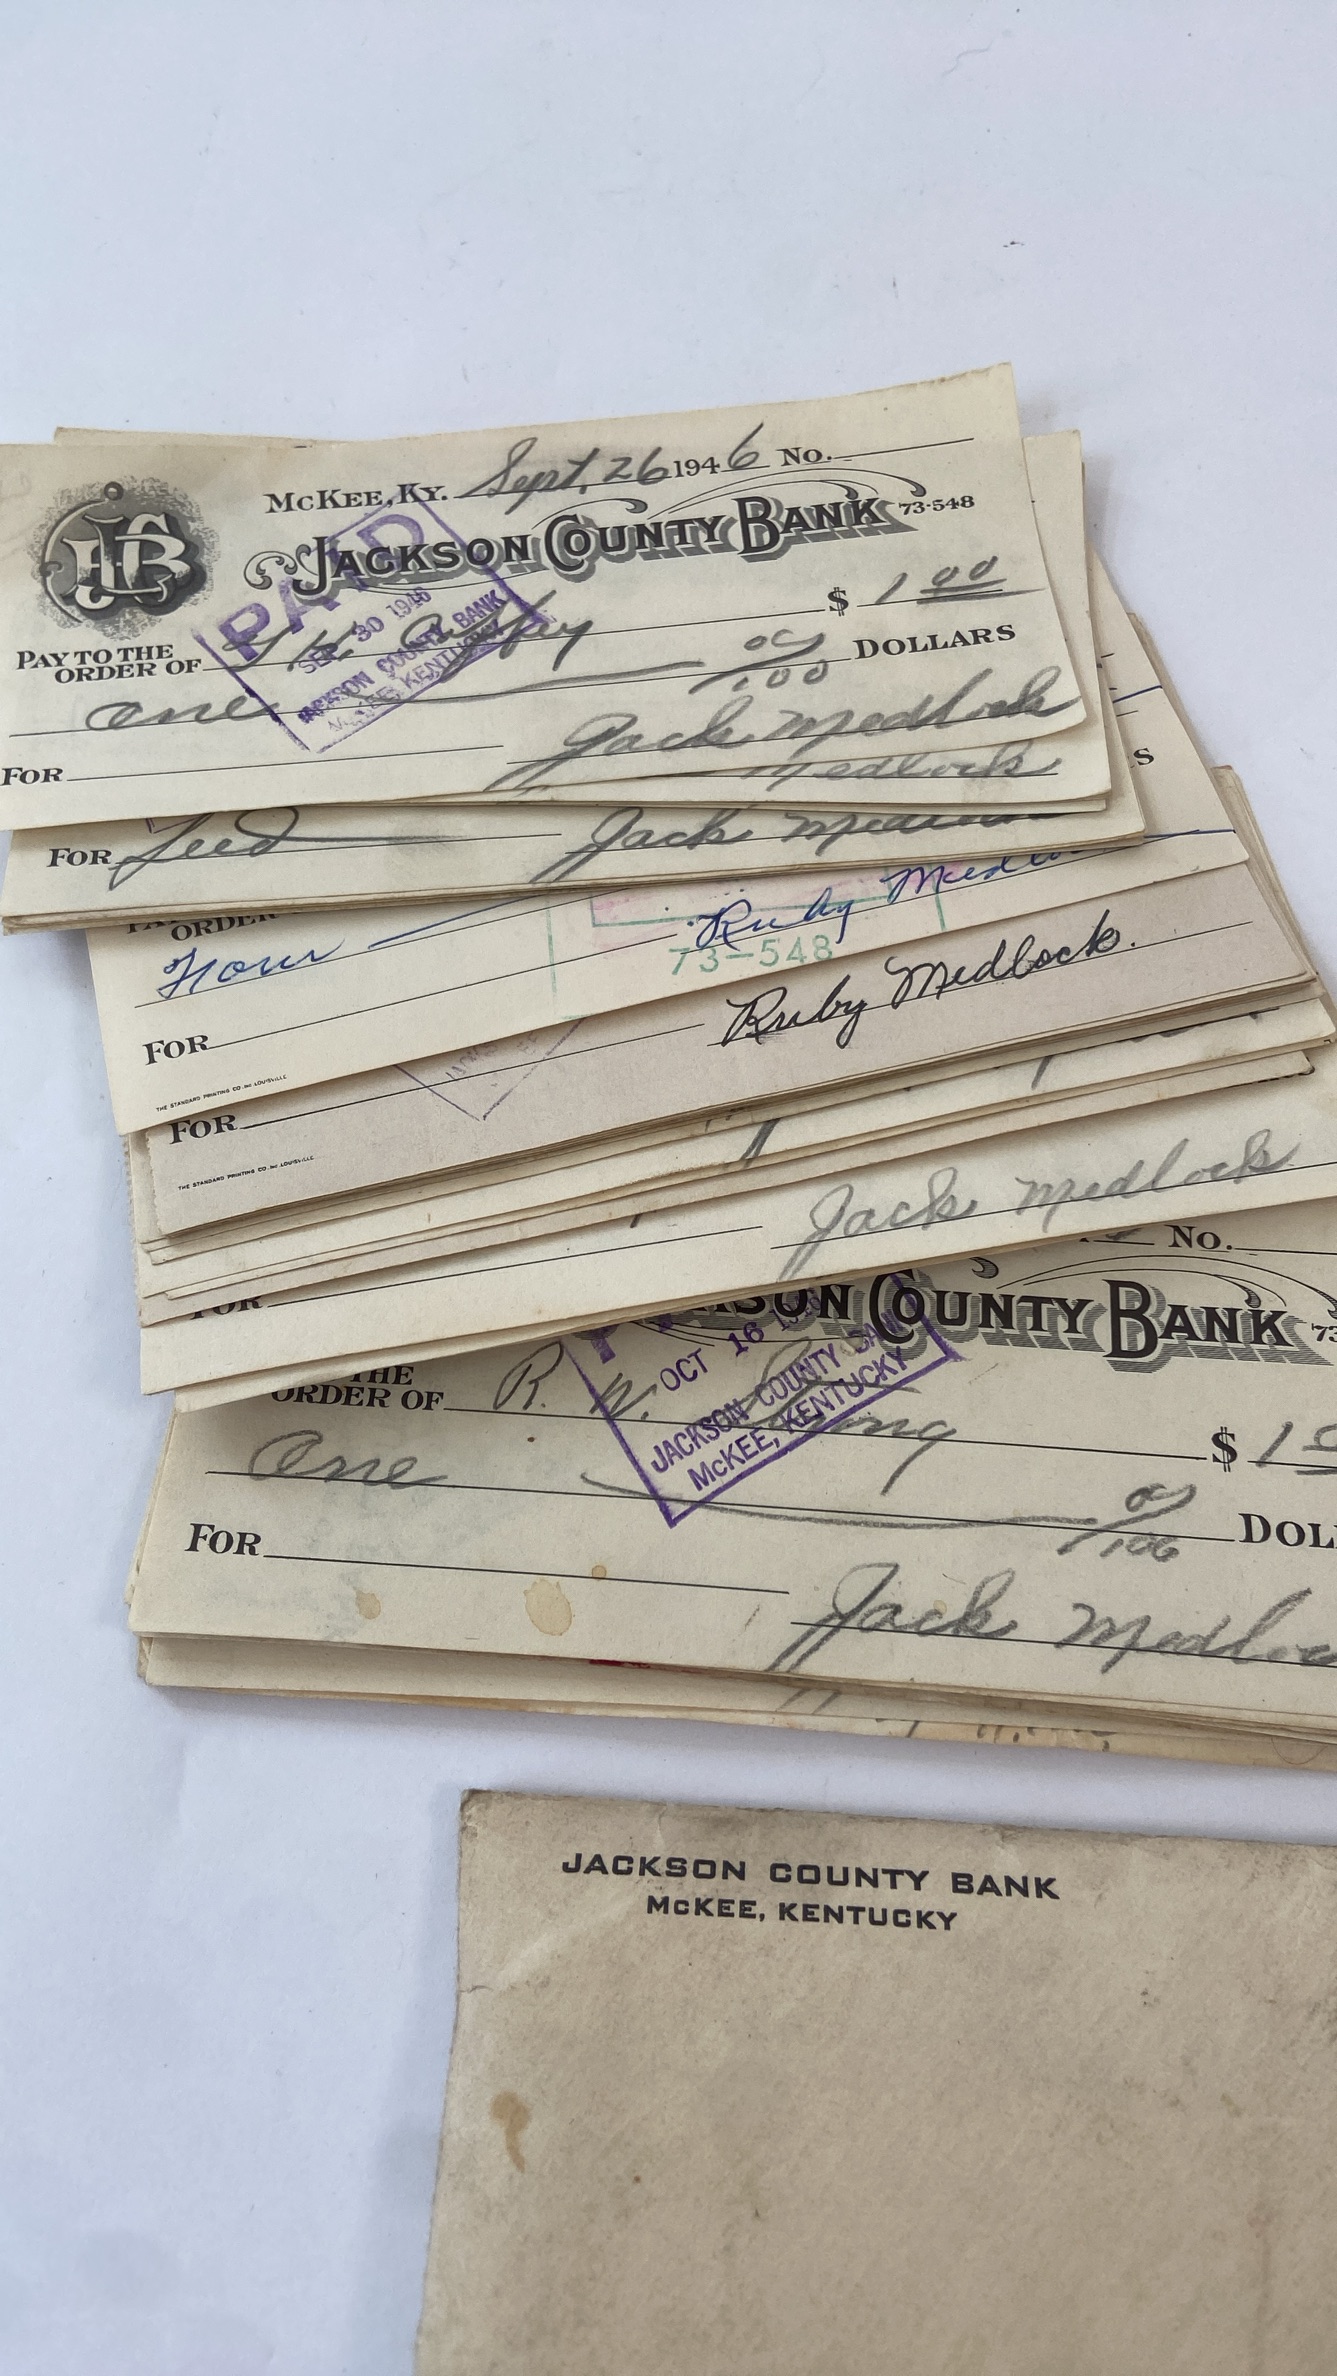 McKEE, KY. Sept. 26 1946 No.
JCB
JACKSON COUNTY BANK 73-548
PAID
SEP 30 1946
JACKSON COUNTY BANK
McKEE, KENTUCKY
PAY TO THE
ORDER OF $ 1 00
one 00/100 DOLLARS
FOR Jack Medlock
Medlock
S
FOR Feed Jack
ORDER
Ruby
73-548
FOR
THE STANDARD PRINTING CO. INC. LOUISVILLE
Ruby Medlock.
FOR
THE STANDARD PRINTING CO. INC. LOUISVILLE
Jack Medlock
FOR
No.
COUNTY BANK
OCT 16
JACKSON COUNTY BANK
McKEE, KENTUCKY
THE
ORDER OF R. W. $ 1
One DOL
FOR
Jack
JACKSON COUNTY BANK
McKEE, KENTUCKY